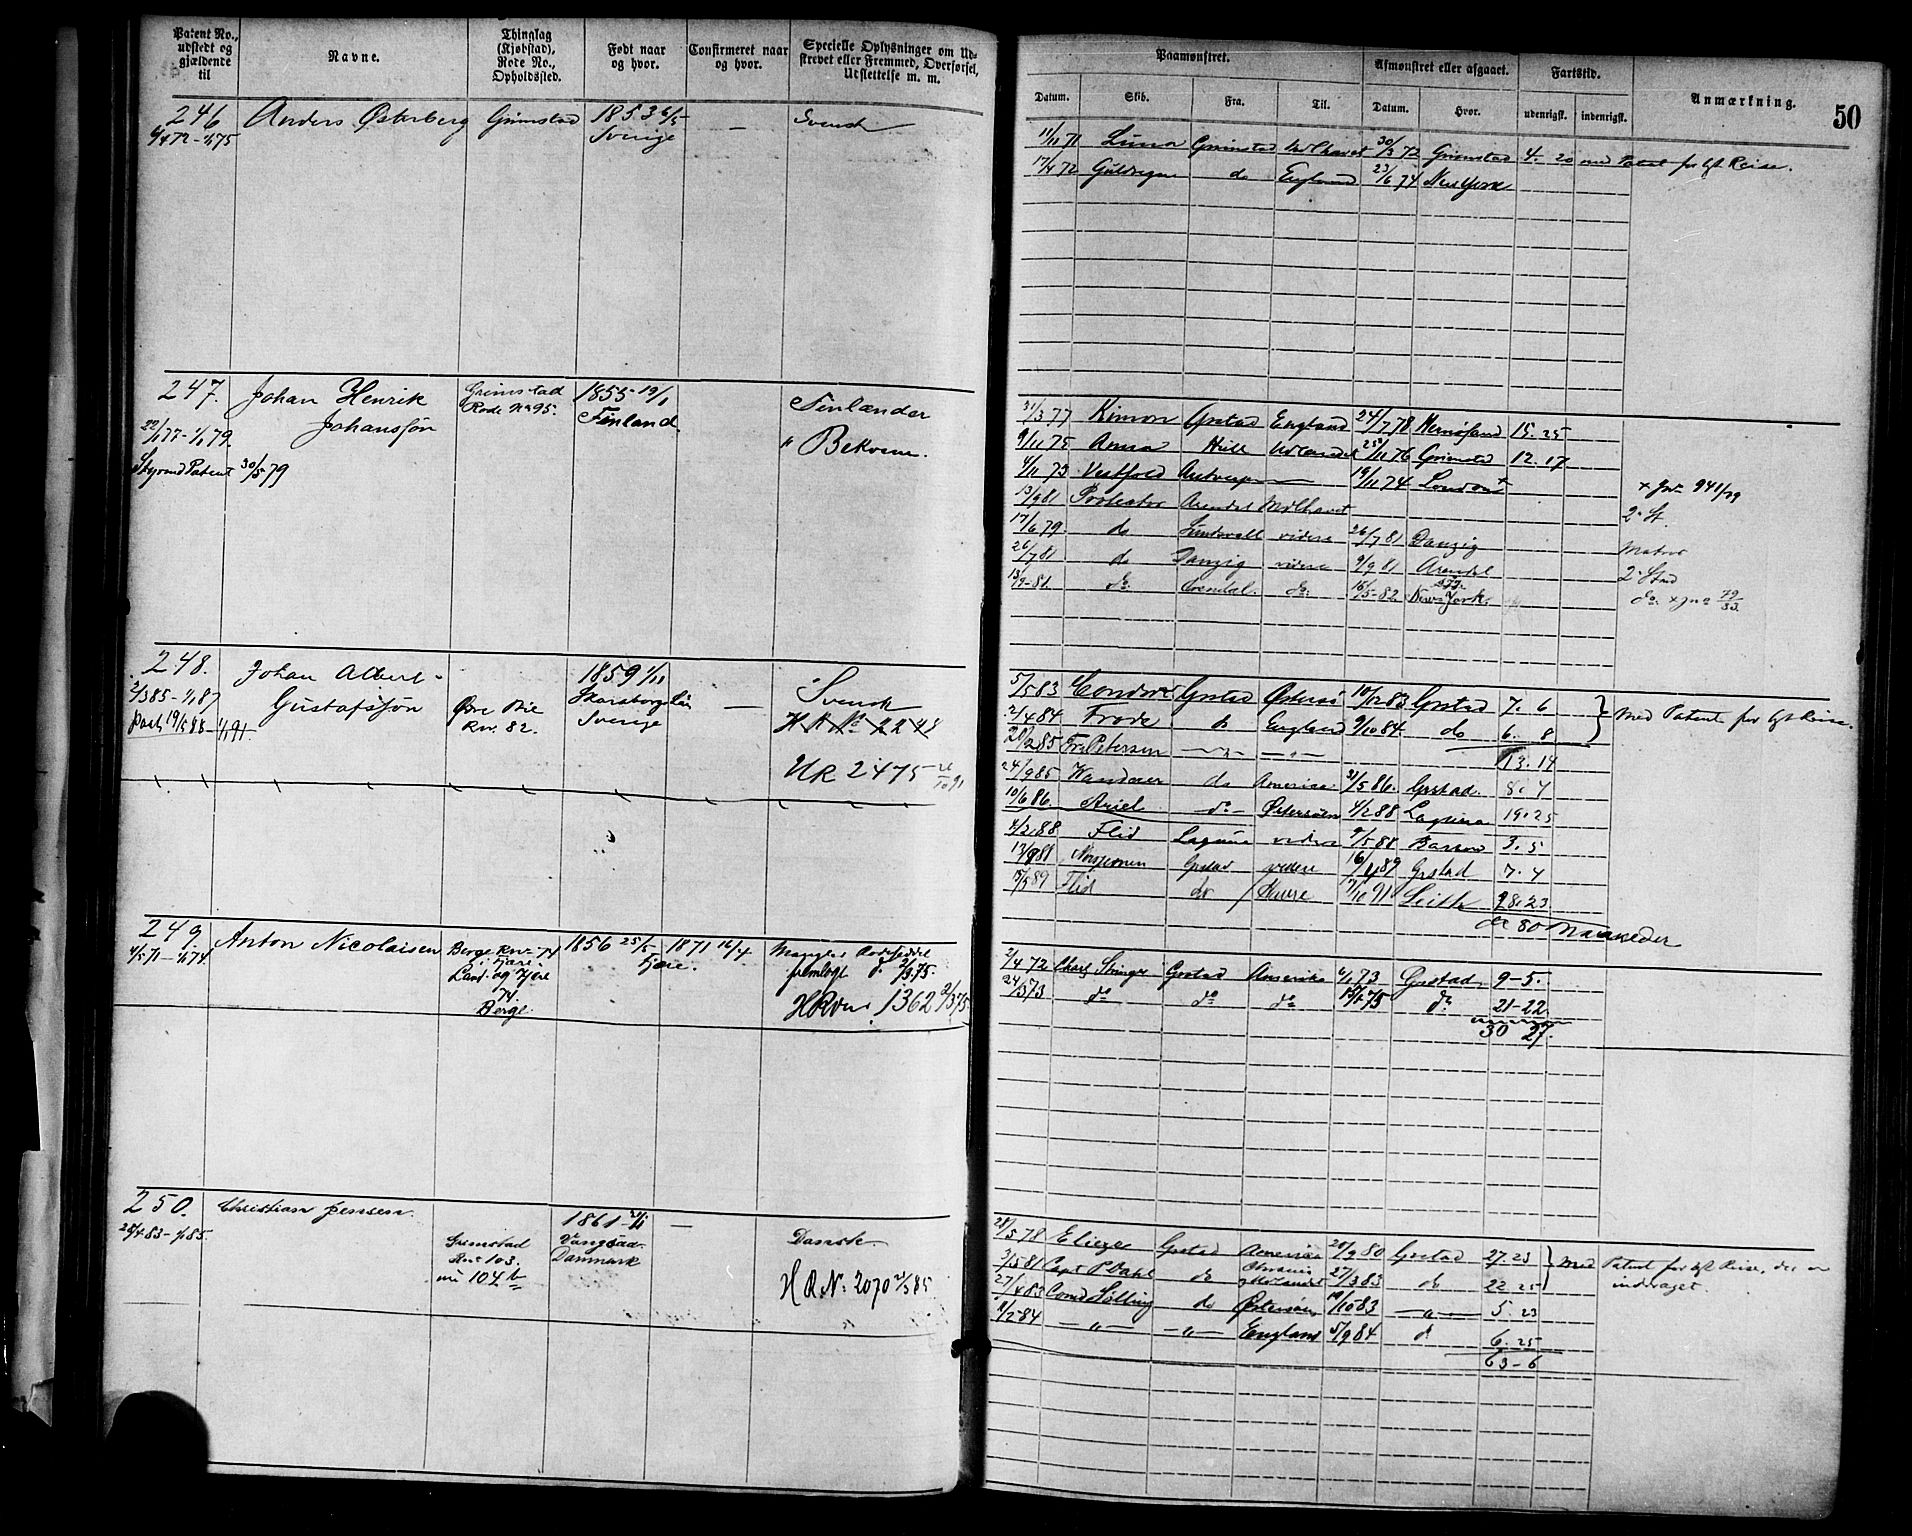 Patent No., udstedt og gjældende til
Navne.
Thinglag (Kjøbstad), Rode No., Opholdssted.
Født naar og hvor.
Confirmeret naar og hvor.
Specielle Oplysninger om Udskrevet eller Fremmed, Overførsel, Udslettelse m. m.
Paamønstret.
Datum. Skib. Fra. Til.
Afmønstret eller afgaaet.
Datum. Hvor.
Fartstid.
udenrigsk. indenrigsk.
Anmærkning.
50
246 Anders Østerberg Grimstad 1853 6/5 — Svensk
Sverige
11/11 71 Luna Grimstad 30/3 72 Grimstad 4. 20 med Patent for
17/4 72 do England 23/6 74 New York
247. Johan Henrik Johanssøn
Grimstad
Rode No 95.
1855 - 19/1
Finland.
Finlænder
" Bekvem.
22/1 77 - 1/1 79.
Styrmd Patent 30/5 79
31/3 77 Kimon Grstad England 24/7 78 Hernøsand 15. 25
9/11 75 Anna Hull 25/11 76 Grimstad 12. 17
4/11 73 Vestfold Antwerpen — 19/11 74 London +
+ Jnr 941/79
13/9 81 Protector Arendal
2. St.
17/6 79. do videre 26/7 81 Danzig
Matros
26/7 81 do Danzig videre 9/9 81 Arendal
2. Stmd
13/9-81. do. Arendal. do. 16/5-82. New York.
do. + Jno 79/83
248. Johan Albert Gustafssøn
Øvre Bie
Rnr. 82.
1859 1/11
Skaraborgslän
Sverige
—
Svensk
HR No 2248
UR 2475
2/3 85 - 1/1 87
19/5 88 - 1/1 91.
5/5 83 Condor Grstad Østersø 10/12 83 Grstad 7. 6
Med Patent for
2/4 84 Frode do England 9/10 84 do 6. 8
13. 14
28/2 85 Fr. Petersen
24/9 85 do Amerika 31/5 86. Grstad. 8. 7
10/6 86. Ariel do Østersøen 4/2 88 Laguna 19. 25
4/2 88 Flid Laguna videre 9/5 88 Barrow 3. 5
13/8 88 Grstad videre 16/4 89 Grstad 7. 4
15/5 89 Flid do 7/10 91 Leith 28. 23
80 Maaneder
249. Anton Nicolaisen
Berge Rnr. 74
i Fjære
Land. og Fjære
74.
Berge.
1856 25/5
1871 16/4
Fjære.
2/3 75.
HRvn. 1362 2/3 75
4/5 71 - 1/1 74
2/4 72 Charl. Stinge Grstad Amerika 73 Grstad 9-5.
24/3 73 do do do 75 do 21-22
30 27.
250. Christian Jensen.
Grimstad
Rnr 103.
nu 104 b
1861 -
Vangsaa
Danmark
—
Dansk.
HR No 2070 2/3 85
28/4 83 - 1/1 85.
28/5 78 Eliezer Grstad Amerika 20/9 80 Grstad 27. 23
Med Patent for Reise, der er inddraget.
3/5 81 Capt P Dahl do 27/3 83 do 22 25
27/4 83 Comd Sølling do Østersøen 19/10 83 —"— 5. 23
11/2-84 —"— —"— England 5/9 84 d 6. 25
63-6